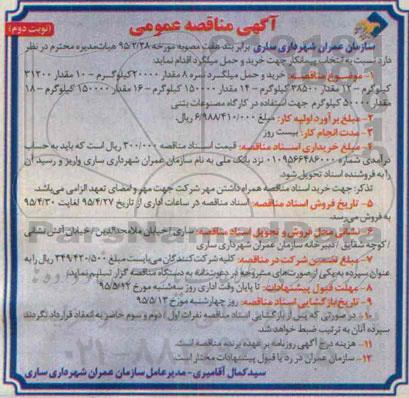 آگهی مناقصه عمومی
(نوبت دوم)
سازمان عمران شهرداری ساری برابر بند هفت مصوبه مورخه ۹۵/۲/۲۸ هیات‌مدیره محترم در نظر
دارد نسبت به انتخاب پیمانکار جهت خرید و حمل میلگرد اقدام نماید.
۱- موضوع مناقصه: خرید و حمل میلگرد نمره ۸ مقدار ۲۰۰۰۰ کیلوگرم - ۱۰ مقدار ۳۱۲۰۰
کیلوگرم - ۱۲ مقدار ۳۸۵۰۰ کیلوگرم - ۱۴ مقدار ۱۵۰۰۰۰ کیلوگرم - ۱۶ مقدار ۱۵۰۰۰۰ کیلوگرم - ۱۸
مقدار ۵۰۰۰۰ کیلوگرم جهت استفاده در کارگاه مصنوعات بتنی
۲- مبلغ برآورد اولیه کار: مبلغ ۶/۹۸۸/۴۱۰/۰۰۰ ریال.
۳- مدت انجام کار: بیست روز
۴- مبلغ خریداری اسناد مناقصه: قیمت اسناد مناقصه ۳۰۰/۰۰۰ ریال است که باید به حساب
درآمدی شماره ۰۱۰۹۵۶۶۴۸۶۰۰۰ نزد بانک ملی به نام سازمان عمران شهرداری ساری واریز و رسید آن
را به فروشنده اسناد تحویل شود.
تذکر: جهت خرید اسناد مناقصه همراه داشتن مهر شرکت جهت مهر و امضای تعهد الزامی می‌باشد.
۵- تاریخ فروش اسناد مناقصه: اسناد مناقصه در ساعات اداری از تاریخ ۹۵/۴/۲۷ لغایت ۹۵/۴/۳۰
به فروش می‌رسد.
۶- نشانی محل فروش و تحویل اسناد مناقصه: ساری/خیابان ملامجدالدین/خیابان آتش نشانی
/کوچه شقایق/دبیرخانه سازمان عمران شهرداری ساری
۷- مبلغ تضمین شرکت در مناقصه: کلیه شرکت‌کنندگان می‌بایست مبلغ ۳۴۹/۴۲۰/۵۰۰ ریال را به
عنوان سپرده به یکی از صورت‌های مشروحه در دعوتنامه به دستگاه مناقصه گزار تسلیم نمایند.
۸- مهلت قبول پیشنهادات: تا پایان وقت اداری روز سه‌شنبه مورخ ۹۵/۵/۱۲
۹- تاریخ بازگشایی اسناد مناقصه: روز چهارشنبه مورخ ۹۵/۵/۱۳
۱۰- در صورتی که پس از بازگشایی اسناد مناقصه نفرات اول و دوم و سوم حاضر به انعقاد قرارداد نگردند
سپرده آنان به ترتیب ضبط خواهد شد.
۱۱- هزینه درج آگهی روزنامه بر عهده برنده مناقصه است.
۱۲- سازمان عمران در رد یا قبول پیشنهادات مختار است.
سید کمال آقامیری - مدیرعامل سازمان عمران شهرداری ساری